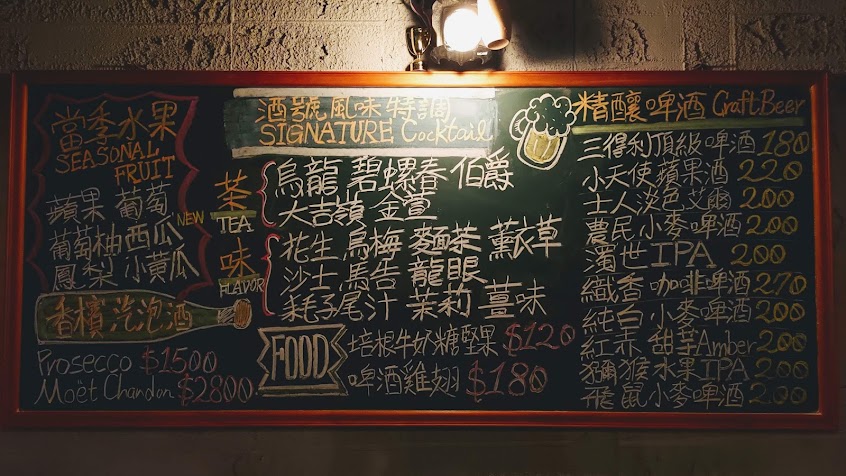 當季水果
SEASONAL
FRUIT
蘋果 葡萄
葡萄柚 西瓜
鳳梨 小黃瓜
香檳 汽泡酒
Prosecco $1500
Moët Chandon $2800
酒號風味特調
SIGNATURE Cocktail
NEW
茶
TEA
烏龍 碧螺春 伯爵
大吉嶺 金萱
味
FLAVOR
花生 烏梅 麵茶 薰衣草
沙士 馬告 龍眼
耗子尾汁 茉莉 薑味
FOOD
培根牛奶糖堅果 $120
啤酒雞翅 $180
精釀啤酒 Craft Beer
三得利頂級啤酒 180
小天使蘋果酒 220
士人淡色艾爾 200
農民小麥啤酒 200
濁世IPA 200
織香咖啡啤酒 270
純白小麥啤酒 200
紅赤甜芋Amber 200
獼猴水果IPA 200
飛鼠小麥啤酒 200